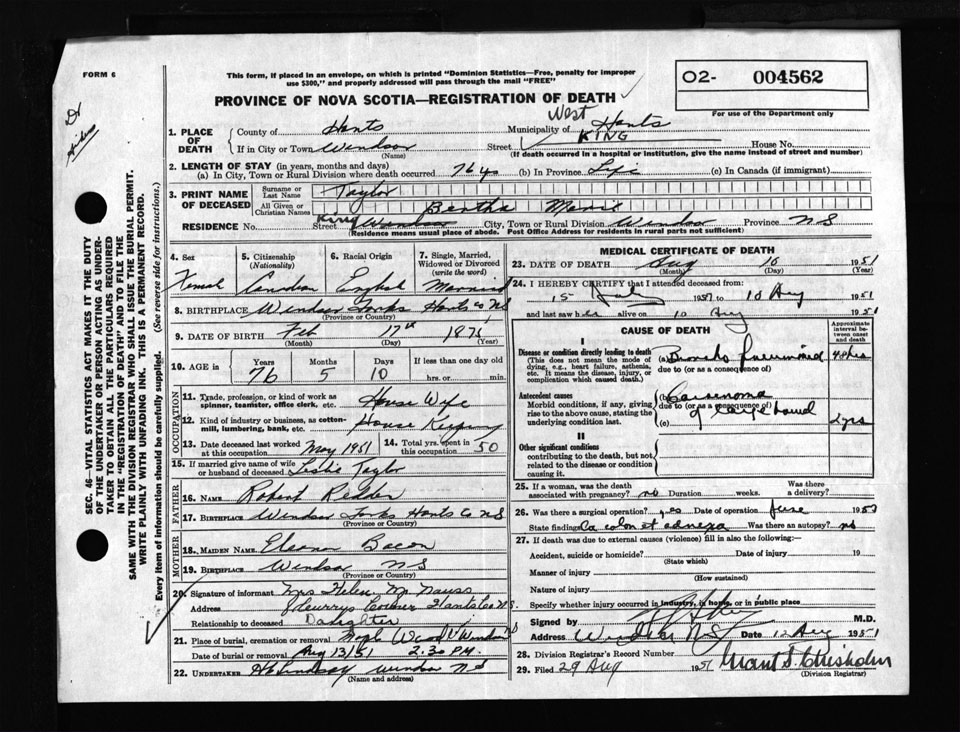 FORM 6
This form, if placed in an envelope, on which is printed "Dominion Statistics—Free, penalty for improper
use $300," and properly addressed will pass through the mail "FREE"
O2- 004562
For use of the Department only
PROVINCE OF NOVA SCOTIA—REGISTRATION OF DEATH
Dr
SEC. 46—VITAL STATISTICS ACT MAKES IT THE DUTY
OF THE UNDERTAKER OR PERSON ACTING AS UNDER-
TAKER TO OBTAIN ALL THE PARTICULARS REQUIRED
IN THE "REGISTRATION OF DEATH" AND TO FILE THE
SAME WITH THE DIVISION REGISTRAR WHO SHALL ISSUE THE BURIAL PERMIT.
WRITE PLAINLY WITH UNFADING INK. THIS IS A PERMANENT RECORD.
Every item of information should be carefully supplied. (See reverse side for instructions.)
1. PLACE OF DEATH
County of Hants Municipality of West Hants
If in City or Town Windsor (Name) Street KING House No.
(If death occurred in a hospital or institution, give the name instead of street and number)
2. LENGTH OF STAY (in years, months and days)
(a) In City, Town or Rural Division where death occurred 76 yrs (b) In Province Life (c) In Canada (if immigrant)
3. PRINT NAME OF DECEASED
Surname or Last Name Taylor
All Given or Christian Names Bertha
RESIDENCE No. Street King Windsor City, Town or Rural Division Windsor Province N S
(Residence means usual place of abode. Post Office Address for residents in rural parts not sufficient)
4. Sex Female
5. Citizenship (Nationality) Canadian
6. Racial Origin English
7. Single, Married, Widowed or Divorced (write the word) Married
8. BIRTHPLACE Windsor Forks Hants Co N S
(Province or Country)
9. DATE OF BIRTH Feb 17th 1875
(Month) (Day) (Year)
10. AGE in Years 76 Months 5 Days 10 If less than one day old hrs. or min.
OCCUPATION
11. Trade, profession, or kind of work as spinner, teamster, office clerk, etc. House Wife
12. Kind of industry or business, as cotton-mill, lumbering, bank, etc. House Keeping
13. Date deceased last worked at this occupation May 1951
14. Total yrs. spent in this occupation 50
15. If married give name of wife or husband of deceased Leslie Taylor
FATHER
16. NAME Robert Redden
17. BIRTHPLACE Windsor Forks Hants Co N S
(Province or Country)
MOTHER
18. MAIDEN NAME Eleanor Bacon
19. BIRTHPLACE Windsor N S
(Province or Country)
20. Signature of informant Mrs Helen M.
Address Corner Hants Co N S.
Relationship to deceased Daughter
21. Place of burial, cremation or removal Maple Wood Windsor N S
Date of burial or removal Aug 13/51 2.30 P.M.
22. UNDERTAKER H Lindsay Windsor N S
(Name and address)
MEDICAL CERTIFICATE OF DEATH
23. DATE OF DEATH Aug 10 1951
(Month) (Day)
24. I HEREBY CERTIFY that I attended deceased from:
15 July 1951 to 10 Aug 1951
and last saw her alive on 10 Aug 1951
CAUSE OF DEATH
Approximate interval between onset and death
I
Disease or condition directly leading to death
(This does not mean the mode of dying, e.g., heart failure, asthenia, etc. It means the disease, injury, or complication which caused death.)
(a) Broncho pneumonia 48 hrs
due to (or as a consequence of)
Antecedent causes
Morbid conditions, if any, giving rise to the above cause, stating the underlying condition last.
(b) Carcinoma
due to (or as a consequence of)
(c) of large bowel 2 yrs
II
Other significant conditions
contributing to the death, but not related to the disease or condition causing it.
25. If a woman, was the death associated with pregnancy? no Duration weeks. Was there a delivery?
26. Was there surgical operation? yes Date of operation June 1950
State findings Ca colon et adnexa Was there an autopsy? no
27. If death was due to external causes (violence) fill in also the following:—
Accident, suicide or homicide? (State which) Date of injury 19
Manner of injury (How sustained)
Nature of injury
Specify whether injury occurred in industry, in home, or in public place
Signed by M.D.
Address Windsor NS Date 12 Aug 1951
28. Division Registrar's Record Number
29. Filed 29 Aug 1951 Grant S. Chisholm
(Division Registrar)